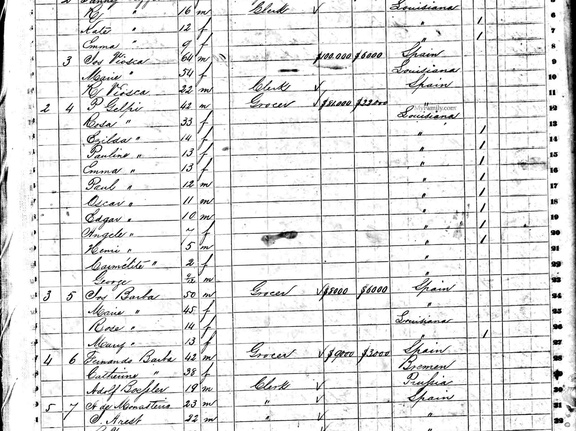 " 16 m Clerk ✓ Louisiana
Kate " 12 f " 1
Emma " 9 f " 1
3 Jos Viosca 64 m $100.000 $6000 Spain
Marie " 54 f Louisiana
K. Viosca 22 m Clerk ✓ Spain
2 4 P Gelpi 42 m Grocer ✓ $22000 "
Rosa " 33 f Louisiana
Ezilda " 14 f " 1
Pauline " 13 f " 1
Emma " 13 f " 1
Paul " 12 m " 1
Oscar " 11 m " 1
Edgar " 10 m " 1
Angele " 7 f " 1
Henri " 5 m " 1
Carmélite " 2 f "
George m "
3 5 Jos Barba 50 m Grocer ✓ $5000 $6000 Spain
Marie " 45 f "
Rose " 14 f Louisiana
Mary " 13 f " 1
4 6 Fernando Barba 42 m Grocer ✓ $9000 $3000 Spain
Catherine " 38 f Bremen
Adolf 19 m Clerk ✓
5 7 A de Monasterio 23 m " ✓ Spain
S. Arest 22 m " ✓ "
MyFamily.com
7
8
9
10
11
12
13
14
15
16
17
18
19
20
21
22
23
24
25
26
27
28
29
30
31
32